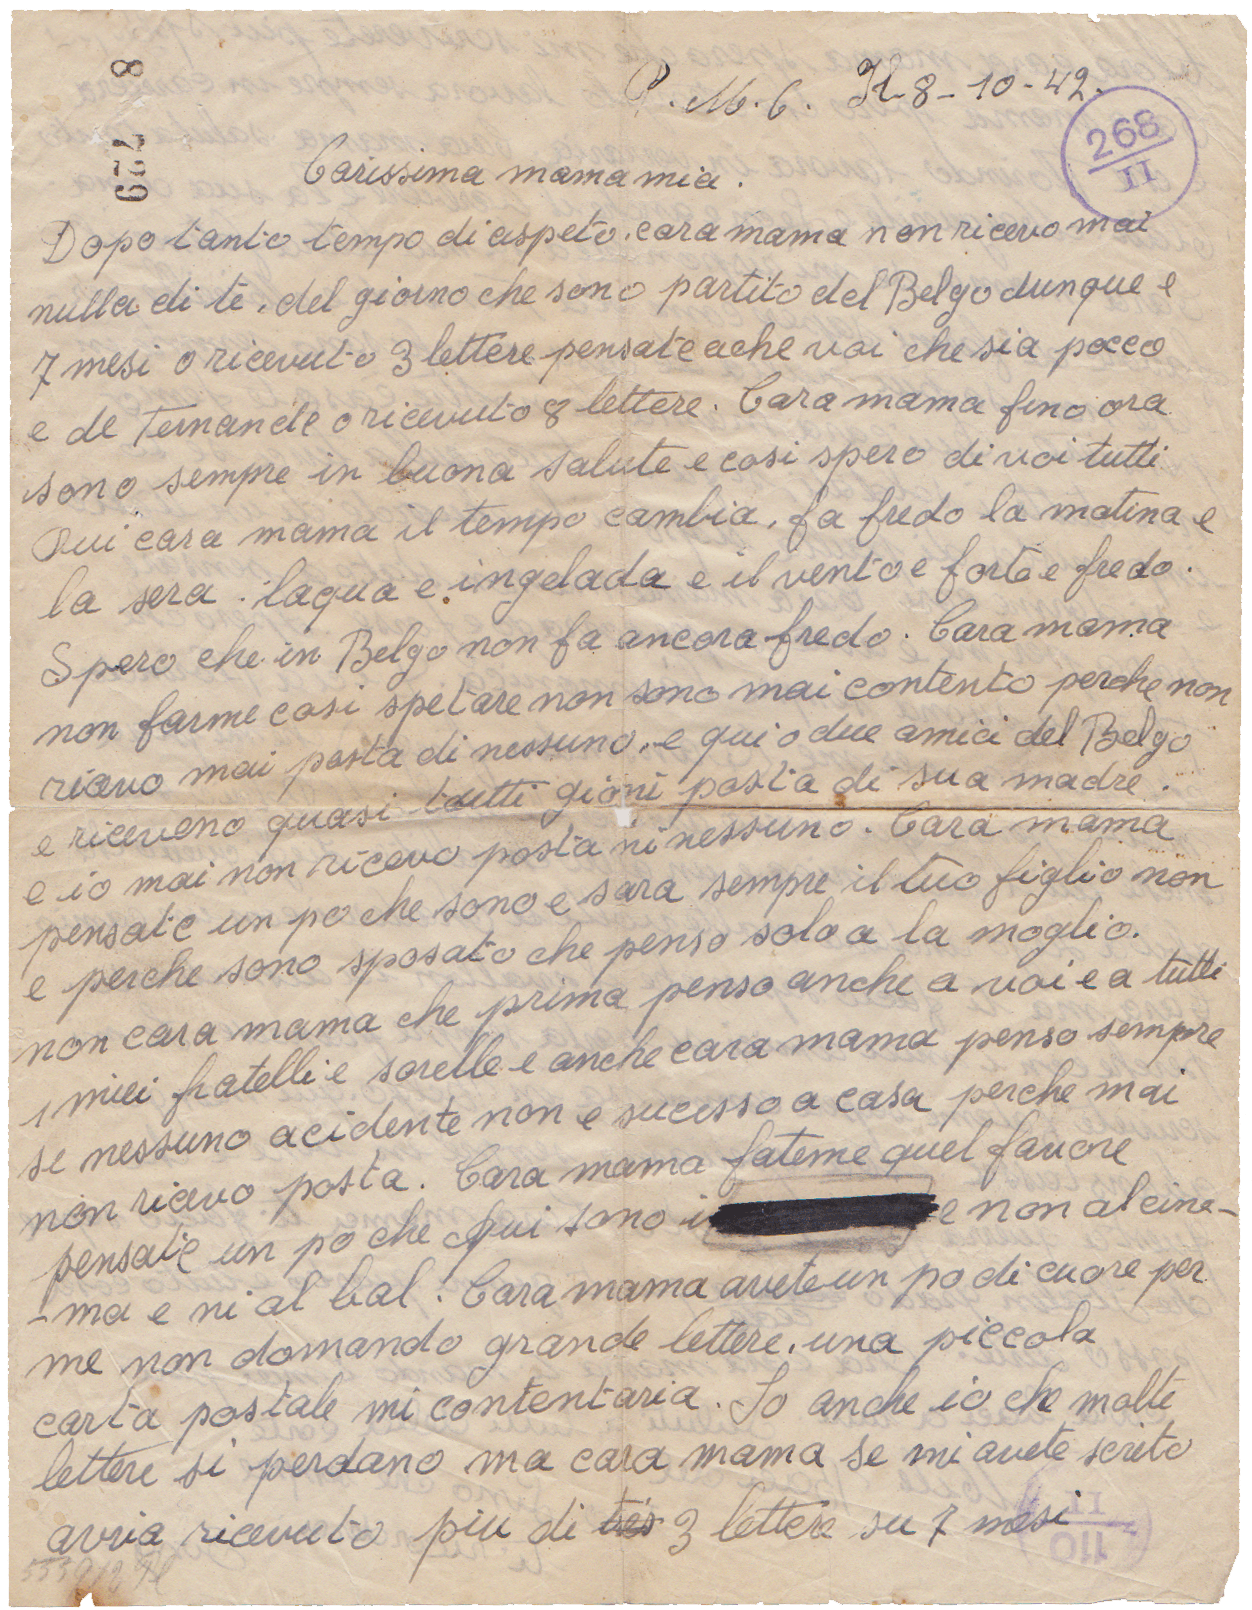 8
729
P. M. 6. Il 8-10-42.
268
II
Carissima mama mia.
Dopo tanto tempo di aspeto, cara mama non ricevo mai
nulla di te, del giorno che sono partito del Belgo dunque e
7 mesi o ricevuto 3 lettere pensate ache voi che sia pocco
e de Fernande o ricevuto 8 lettere. Cara mama fino ora
sono sempre in buona salute e cosi spero di voi tutti
Qui cara mama il tempo cambia, fa fredo la matina e
la sera. laqua e ingelada e il vento e forte e fredo.
Spero che in Belgo non fa ancora fredo. Cara mama
non farme cosi spetare non sono mai contento perche non
ricevo mai posta di nessuno, e qui o due amici del Belgo
e riceveno quasi tutti gioni posta di sua madre.
e io mai non ricevo posta ni nessuno. Cara mama
pensate un po che sono e sara sempre il tuo figlio non
e perche sono sposato che penso solo a la moglio.
non cara mama che prima penso anche a voi e a tutti
i miei fratelli e sorelle e anche cara mama penso sempre
se nessuno acidente non e sucesso a casa perche mai
non ricevo posta. Cara mama fateme quel favore
pensate un po che qui sono i e non al cine-
-ma e ni al bal. Cara mama avete un po di cuore per
me non domando grande lettere, una piccola
carta postale mi contentaria. So anche io che molte
lettere si perdano ma cara mama se mi avete scrito
avria ricevuto piu di tres 3 lettere su 7 mesi
110
II